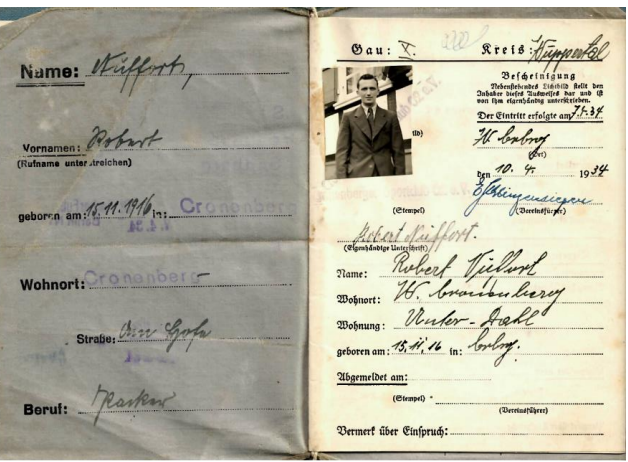 Name: Nüffort,
Vornamen: Robert
(Rufname unterstreichen)
geboren am: 15.11.1916 in: Cronenberg
Wohnort: Cronenberg
Straße:
Beruf: Packer
Gau: Kreis: Wuppertal
Bescheinigung
Nebenstehendes Lichtbild stellt den
Inhaber dieses Ausweises dar und ist
von ihm eigenhändig unterschrieben.
Der Eintritt erfolgte am 7.4.34
(Ort)
den 10. 4. 1934
(Stempel) (Vereinsführer)
Robert Nüffort.
(Eigenhändige Unterschrift)
Name: Robert
Wohnort: W. Cronenberg
Wohnung: Unter-Dahl
geboren am: 15.11.16 in: Crbg.
Abgemeldet am:
(Stempel) (Vereinsführer)
Vermerk über Einspruch: